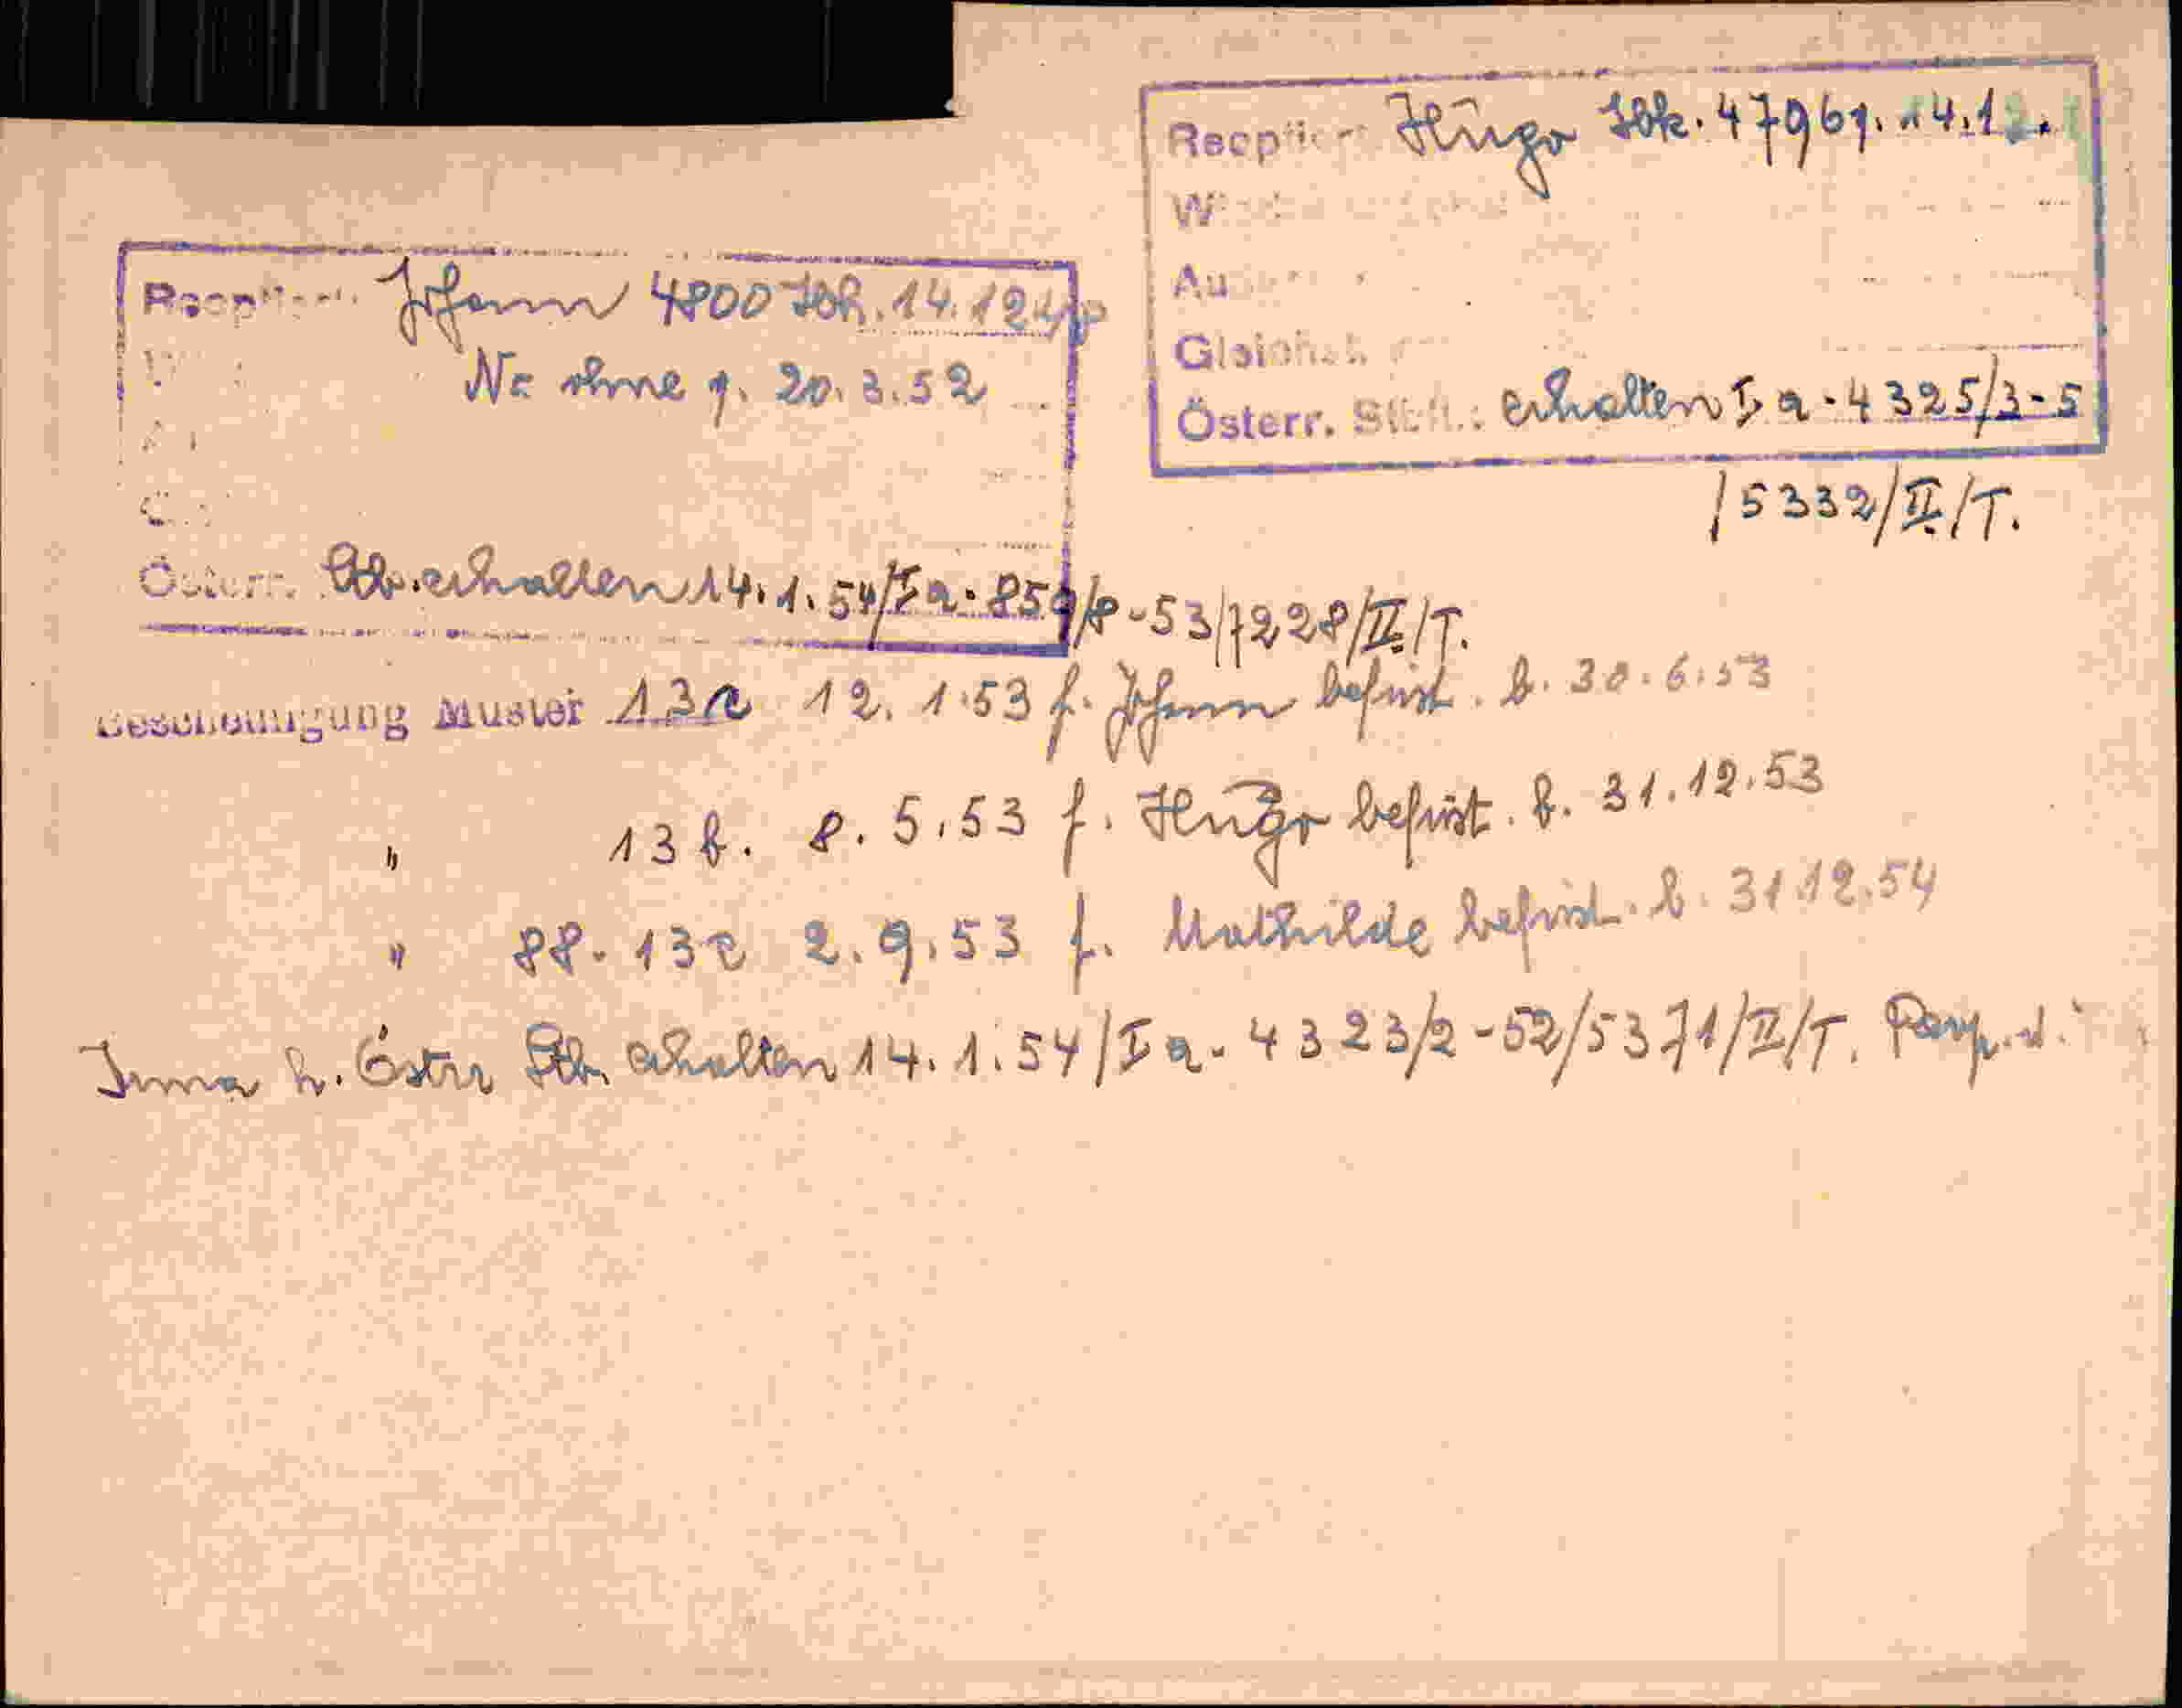 Hugo Idk. 47961. 14.1
W
Au
Gleichst.
Österr. Stb.: erhalten Ia-4325/3-5
/5332/II/T.
Johann 4800 Idk. 14.12.
Nr. ohne 9. 20.3.52
Österr. Stb. erhalten 14.1.54/Ia-859/8-53/7228/II/T.
Bescheinigung Muster 13a 12.1.53 f. Johann befrist. b. 30.6.53
" 13b. 8.5.53 f. Hugo befrist. b. 31.12.53
" 88-13a 2.9.53 f. Mathilde befrist. b. 31.12.54
Irma h. Östr Stb. erhalten 14.1.54/Ia-4323/2-52/5371/II/T.